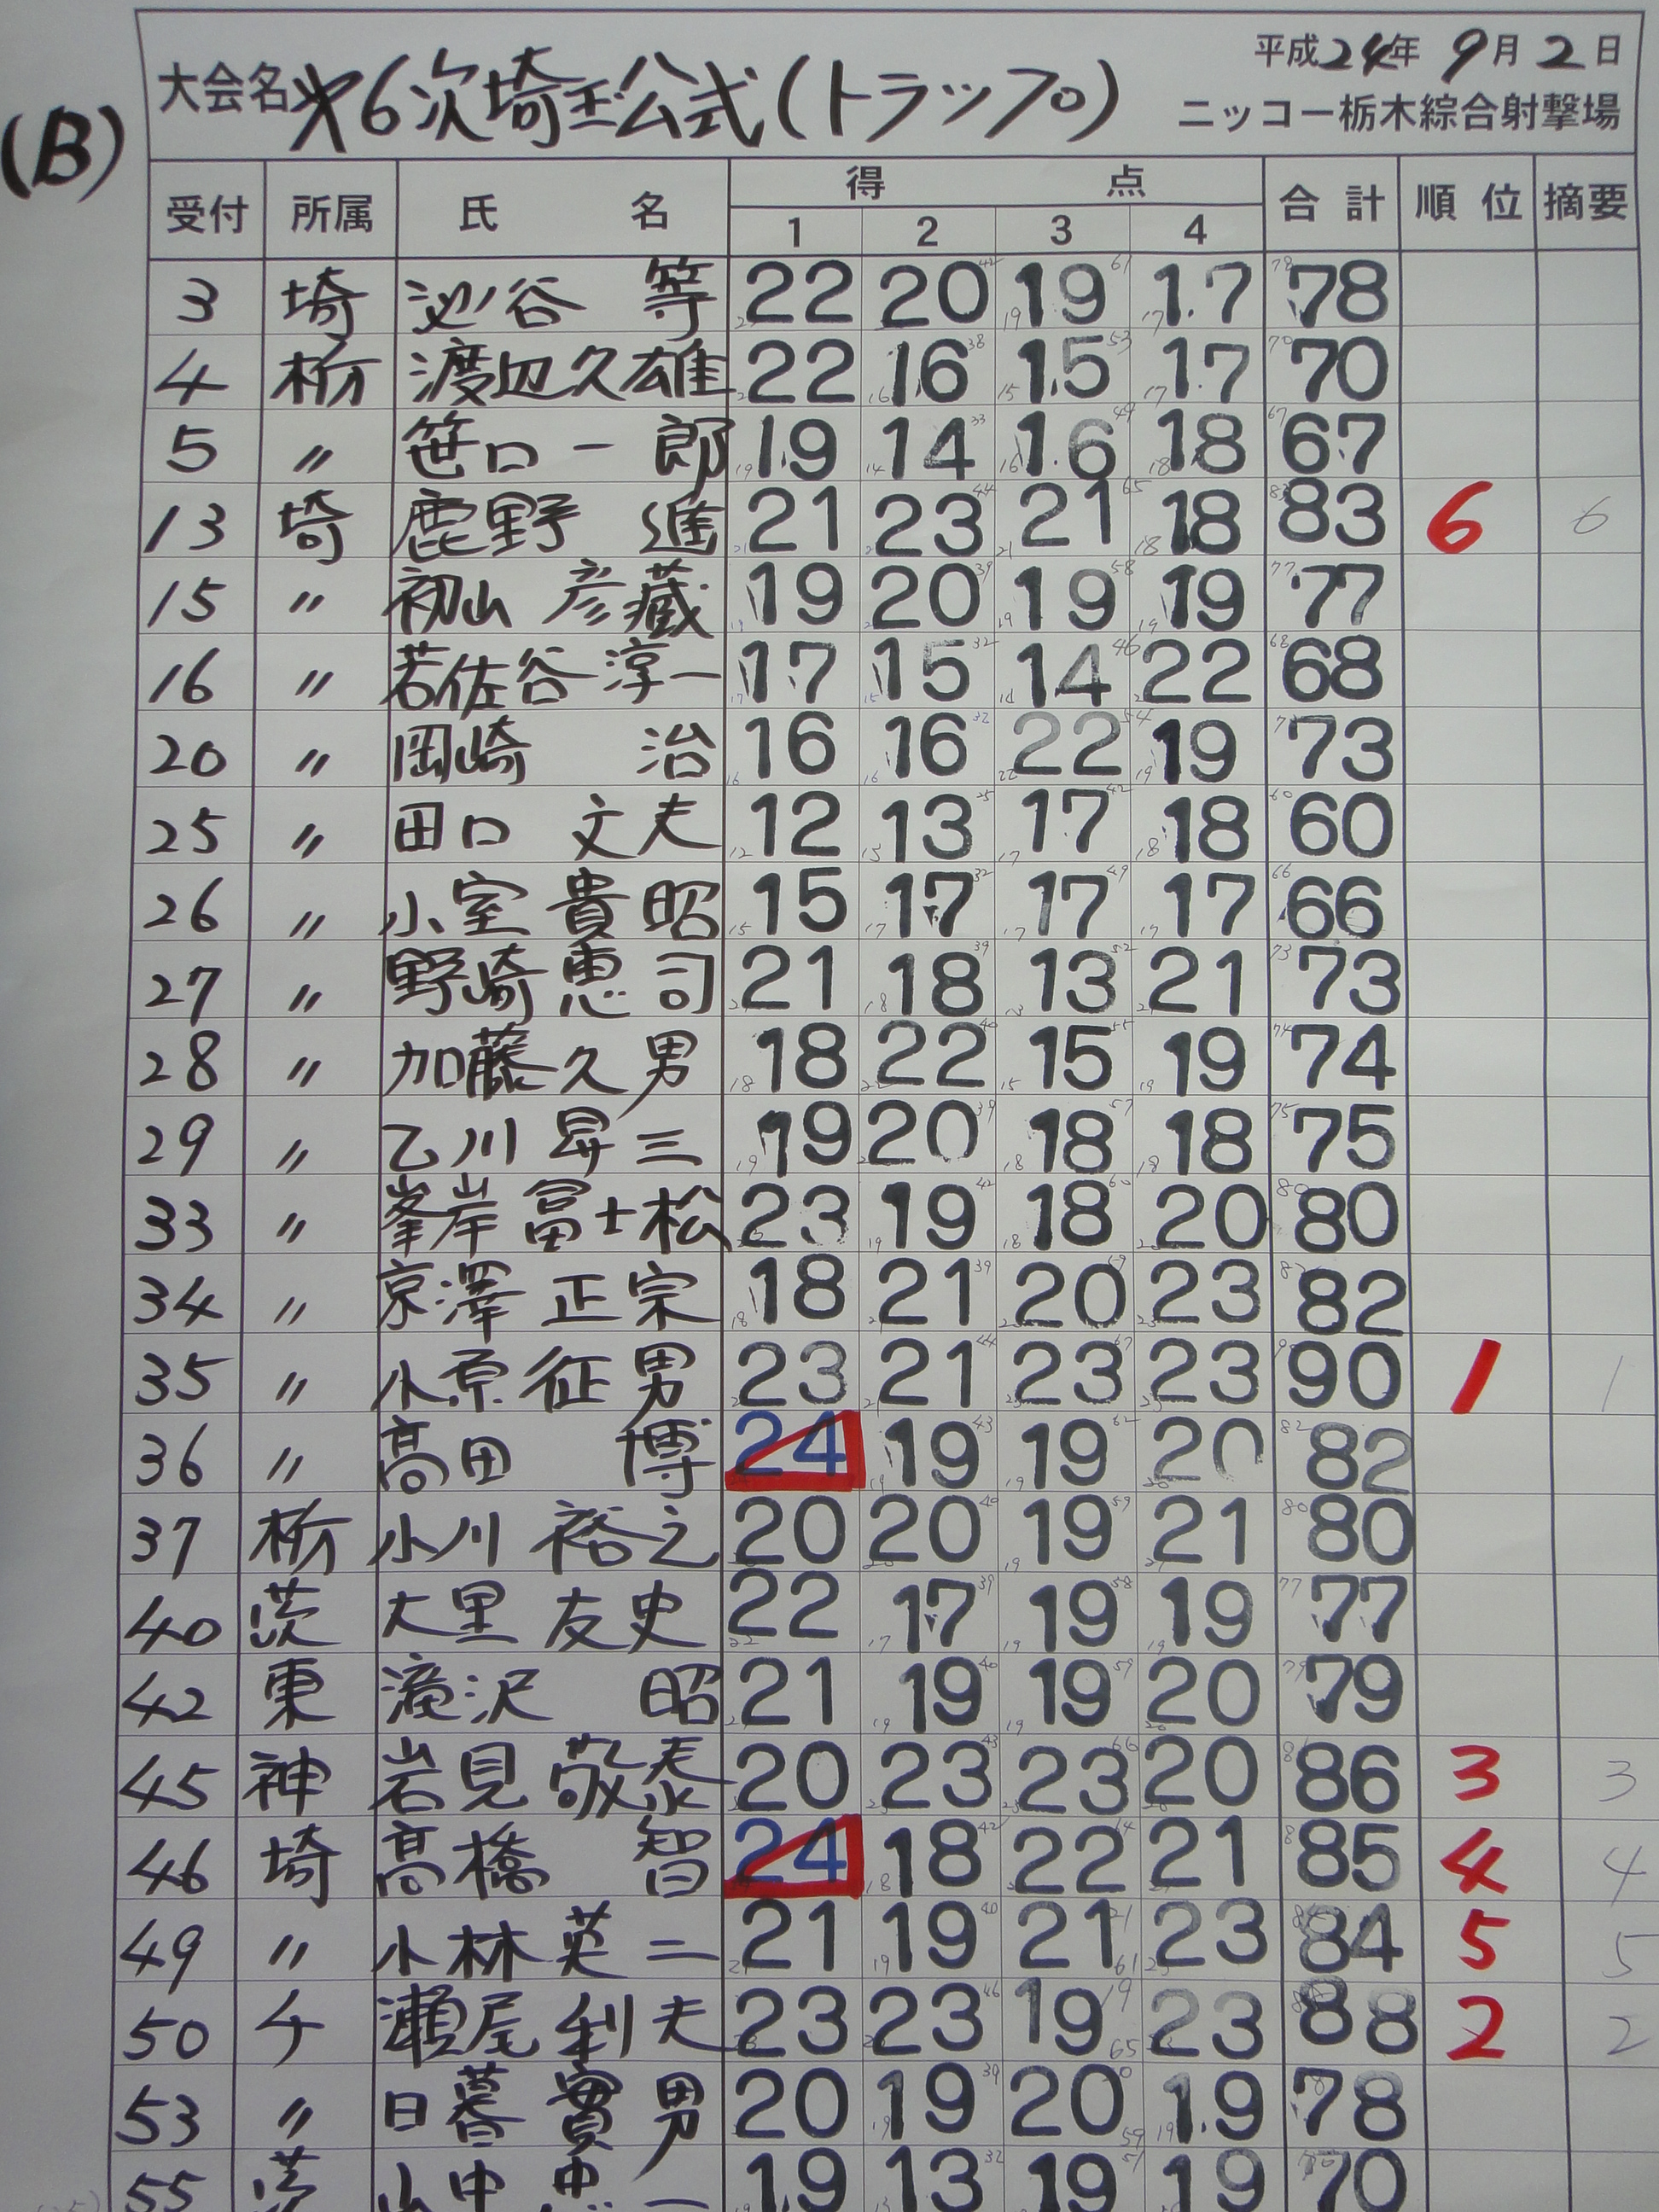 平成24年 9月 2日
大会名 㐧6次埼玉公式(トラップ)
ニッコー栃木綜合射撃場
(B)
受付 所属 氏 名 得 点 合計 順位 摘要
1 2 3 4
3 埼 泌谷 等 22 20 19 17 78
4 栃 渡辺久雄 22 16 15 17 70
5 〃 笹口一郎 19 14 16 18 67
13 埼 鹿野 進 21 23 21 18 83 6 6
15 〃 初山 彦蔵 19 20 19 19 77
16 〃 若佐谷淳一 17 15 14 22 68
20 〃 岡崎 治 16 16 22 19 73
25 〃 田口 文夫 12 13 17 18 60
26 〃 小室貴昭 15 17 17 17 66
27 〃 野崎恵司 21 18 13 21 73
28 〃 加藤久男 18 22 15 19 74
29 〃 乙川昇三 19 20 18 18 75
33 〃 峯岸冨士松 23 19 18 20 80
34 〃 京澤正宗 18 21 20 23 82
35 〃 小原征男 23 21 23 23 90 1 1
36 〃 髙田 博 24 19 19 20 82
37 栃 小川裕之 20 20 19 21 80
40 茨 大里友史 22 17 19 19 77
42 東 滝沢 昭 21 19 19 20 79
45 神 岩見敬泰 20 23 23 20 86 3 3
46 埼 髙橋 智 24 18 22 21 85 4 4
49 〃 小林英二 21 19 21 23 84 5 5
50 千 瀬尾利夫 23 23 19 23 88 2 2
53 〃 日暮實男 20 19 20 19 78
55 茨 山中忠一 19 13 19 19 70